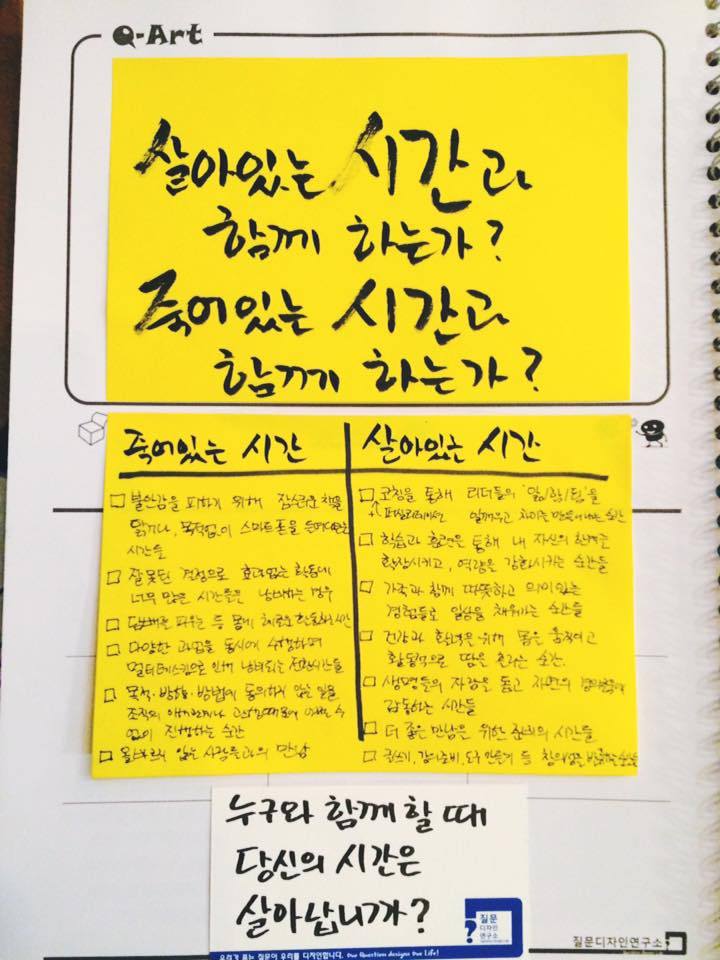 Q-Art
살아있는 시간과
함께 하는가?
죽어있는 시간과
함께 하는가?
죽어있는 시간
□ 불안감을 피하기 위해 책을
읽거나, 목적없이 스마트폰을
시간들
□ 잘못된 결정으로 효과없는 활동에
너무 많은 시간들을 낭비하는 경우
□ 담배를 피우는 등 몸에 해로운
□ 다양한 과업을 동시에 수행하며
멀티태스킹으로 인해 낭비되는 전환시간들
□ 목적·방향·방법에 동의하지 않는 일을
조직의 어쩔 수
없이 진행하는 순간
□ 올바르지 않은 사람들과의 만남
살아있는 시간
□ 코칭을 통해 리더들의 '일/합/팀'을
퍼실리테이션 일깨우고 차이를 만들어내는 순간
□ 학습과 훈련을 통해 내 자신의 한계를
확장시키고, 역량을 강화시키는 순간들
□ 가족과 함께 따뜻하고 의미있는
경험들로 일상을 채워가는 순간들
□ 건강과 위해 몸을 움직이고
활동적으로 땀을 흘리는 순간
□ 생명들의 자람을 돕고 자연의
감동하는 시간들
□ 더 좋은 만남을 위한 준비의 시간들
□ 글쓰기, 강의준비, 도구 만들기 등 창의성을 발휘하는 순간들
누구와 함께 할 때
당신의 시간은
살아납니까?
질문
디자인
연구소
우리가 품는 질문이 우리를 디자인합니다. Our Question designs Our Life!
질문디자인연구소